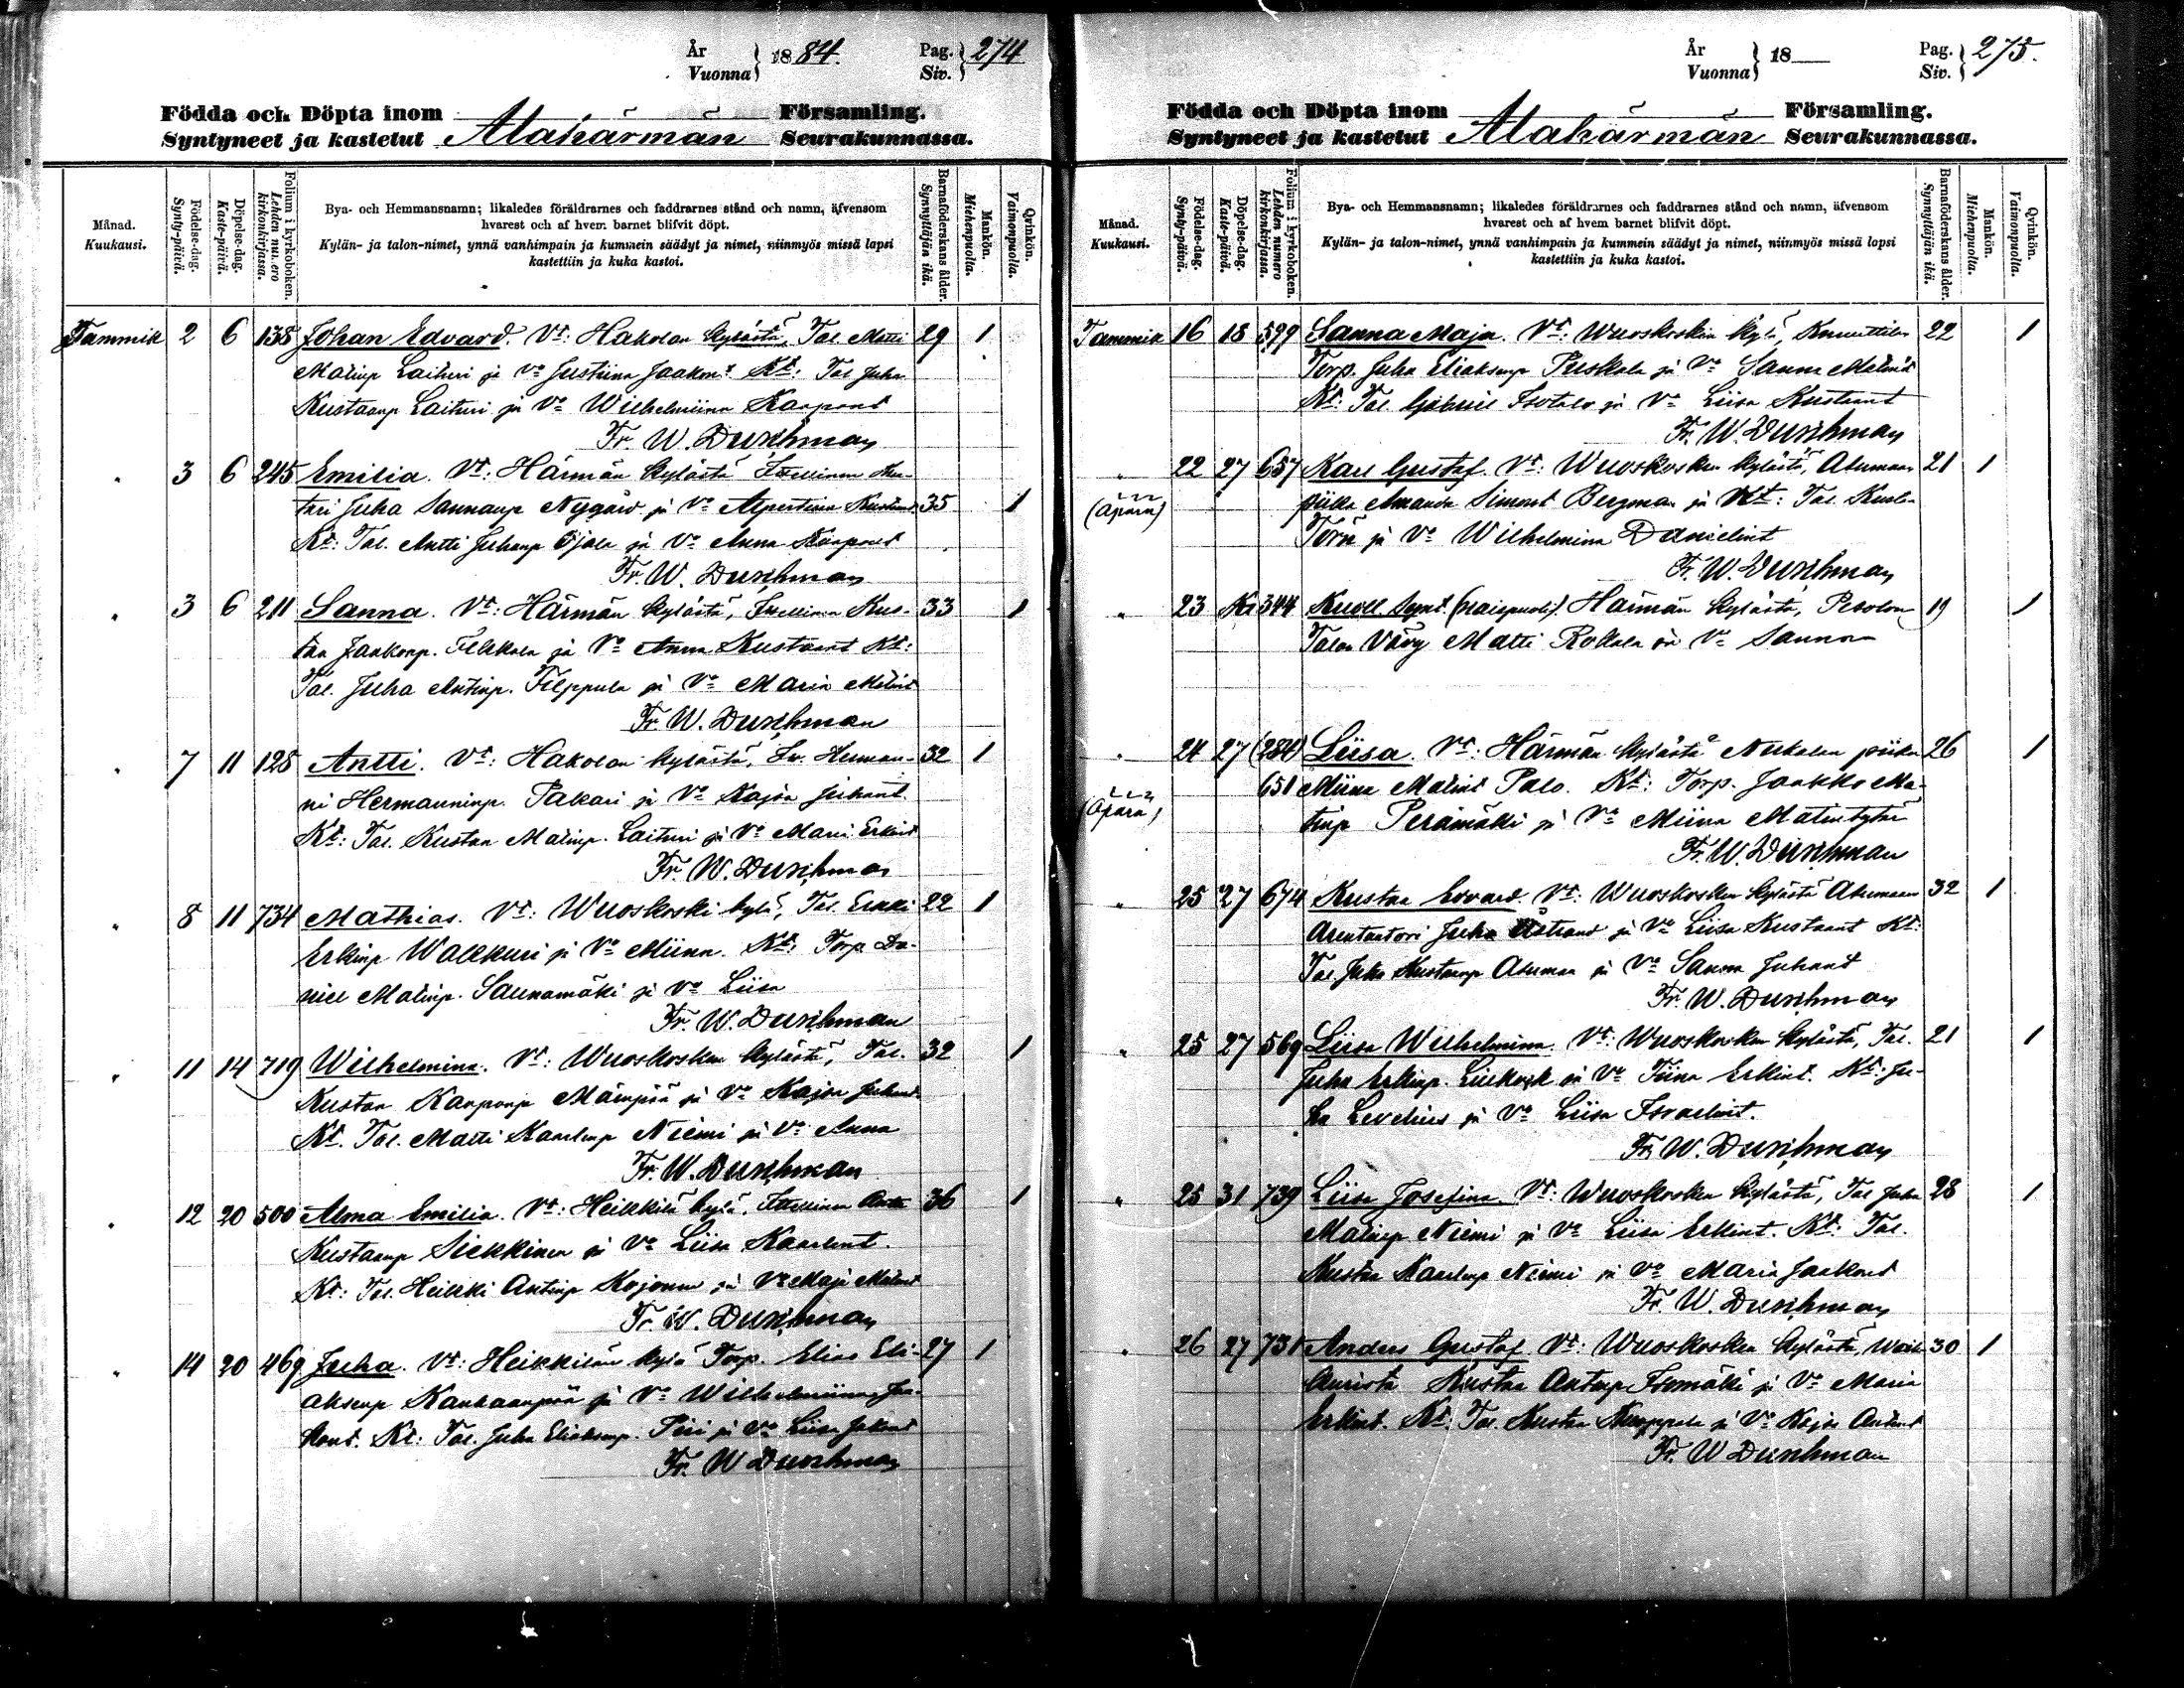 År
Vuonna } 1884. Pag. Siv. } 274
Födda och Döpta inom Församling.
Syntyneet ja kastetut Alahärmän Seurakunnassa.
Månad. Kuukausi.
Födelse-dag. Synty-päivä.
Döpelse-dag. Kaste-päivä.
Folium i kyrkoboken. Lehden numero kirkonkirjassa.
Bya- och Hemmansnamn; likaledes föräldrarnes och faddrarnes stånd och namn, äfvensom
hvarest och af hvem barnet blifvit döpt.
Kylän- ja talon-nimet, ynnä vanhimpain ja kummein säädyt ja nimet, niinmyös missä lapsi
kastettiin ja kuka kastoi.
Barnaföderskans ålder. Synnyttäjän ikä.
Mankön. Miehenpuolia.
Qvinkön. Vaimonpuolia.
Tammik 2 6 138 Johan Edvard. Vt: Hakolan kylästä, Tal. Matti 29 1
Matinp Laituri ja Vo Justiina Jaakont Kt: Tal Juha
Kustaanp Laituri ja Vo Wilhelmiina Kaapont
Fr. W. Durchman
" 3 6 245 Emilia. Vt: Härmän kylästä Itsellinen
Juha Sannanp Nygård ja Vo Alpertiina 35 1
Kt: Tal. Antti Juhanp Ojala ja Vo Anna Kaapont
Fr. W. Durchman
" 3 6 211 Sanna. Vt: Härmän kylästä, Itsellinen Kus- 33 1
taa Jaakonp. ja Vo Anna Kustaant Kt:
Tal. Juha Antinp. Filppula ja Vo Maria Matint
Fr. W. Durchman
" 7 11 128 Antti. Vt: Hakolan kylästä, Herman- 32 1
ni Hermanninp. Pakari ja Vo Kajsa Juhant.
Kt: Tal. Kustaa Matinp. Laituri ja Vo Maria Erkint
Fr. W. Durchman
" 8 11 734 Mathias. Vt: Wuoskoski kylä, Tal. Erkki 22 1
Erkinp Walkkuri ja Vo Miina. Kt: Torp. Da-
niel Matinp. Saunamäki ja Vo Liisa
Fr. W. Durchman
" 11 14 719 Wilhelmina. Vt: Wuoskosken kylästä, Tal. 32 1
Kustaa Kaaponp Mäenpää ja Vo Kajsa Juhant
Kt. Tal. Matti Kaarlenp Niemi ja Vo Anna
Fr. W. Durchman
" 12 20 500 Alma Emilia. Vt: Heikkilä kylä, Itsellinen Antti 36 1
Kustaanp Siekkinen ja Vo Liisa Kaarlent.
Kt: Tal. Heikki Antinp Kojonen ja Vo Maja Matint
Fr. W. Durchman
" 14 20 469 Juha. Vt: Heikkilän kylä Torp. Elias Eli- 27 1
aksenp Kankaanpää ja Vo Wilhelmiina Jaa-
kont. Kt: Tal. Juha Eliaksenp. Piri ja Vo Liisa Jakont
Fr. W Durchman
År
Vuonna } 18 Pag. Siv. } 275.
Födda och Döpta inom Församling.
Syntyneet ja kastetut Alahärmän Seurakunnassa.
Månad. Kuukausi.
Födelse-dag. Synty-päivä.
Döpelse-dag. Kaste-päivä.
Folium i kyrkoboken. Lehden numero kirkonkirjassa.
Bya- och Hemmansnamn; likaledes föräldrarnes och faddrarnes stånd och namn, äfvensom
hvarest och af hvem barnet blifvit döpt.
Kylän- ja talon-nimet, ynnä vanhimpain ja kummein säädyt ja nimet, niinmyös missä lapsi
kastettiin ja kuka kastoi.
Barnaföderskans ålder. Synnyttäjän ikä.
Mankön. Miehenpuolia.
Qvinkön. Vaimonpuolia.
Tammik 16 18 599 Sanna Maja. Vt: Wuoskoskin kylä, Knuuttilan 22 1
Torp. Juha Eliaksenp Puskala ja Vo Sanna Matint
Kt: Tal. Gabriel Isotalo ja Vo Liisa Kustaant
Fr. W. Durchman
" 22 27 657 Karl Gustaf. Vt: Wuoskosken kylästä, Asumaan 21 1
(Äpärä) piika Amanda Simont Bergman ja Kt: Tal. Kaarle
Törn ja Vo Wilhelmina Danielint
Fr. W. Durchman
" 23 Kr 344 Kuoll. synt. (vaimpuoli). Härmän kylästä, Pesolan 19 1
Talon Vävy Matti Rokala ja Vo Sanna
" 24 27 (284) Liisa. Vt: Härmän kylästä Nukalan piika 26 1
(Äpärä) 651 Miina Matint Palo. Kt: Torp. Jaakko Ma-
tinp Perämäki ja Vo Miina Matintytär
Fr. W. Durchman
" 25 27 674 Kustaa Edvard. Vt: Wuoskosken kylästä Asumaan 32 1
Arentaatori Juha Åstrand ja Vo Liisa Kustaant Kt:
Tal. Juha Kustaanp Asumaa ja Vo Sanna Juhant
Fr. W. Durchman
" 25 27 569 Liisa Wilhelmina. Vt: Wuoskosken kylästä, Tal. 21 1
Juha Erkinp. ja Vo Tiina Erkint. Kt: Ju-
ha Levelius ja Vo Liisa Israelint.
Fr. W. Durchman
" 25 31 739 Liisa Josefina. Vt: Wuoskosken kylästä, Tal Juha 28 1
Matinp Niemi ja Vo Liisa Erkint. Kt: Tal.
Kustaa Kaarlenp Niemi ja Vo Maria Jaakont
Fr. W. Durchman
" 26 27 731 Anders Gustaf. Vt: Wuoskosken kylästä, 30 1
Kustaa Antinp Isomäki ja Vo Maria
Erkint. Kt. Tal. Kustaa Knuppala ja Vo Kajsa Antint
Fr. W Durchman